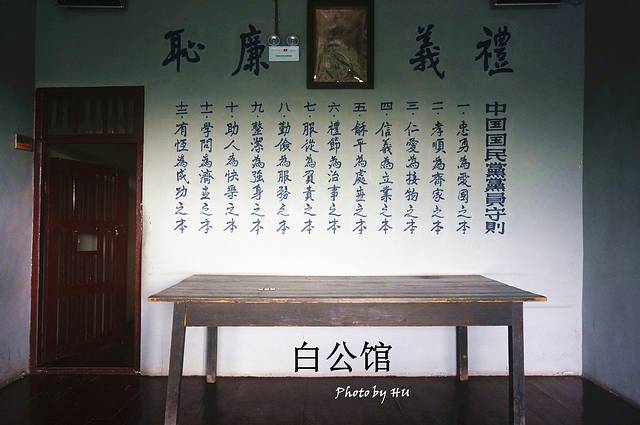 禮義廉恥
中国国民黨黨員守則
一·忠勇為愛國之本
二·孝順為齊家之本
三·仁愛為接物之本
四·信義為立業之本
五·龢平為處世之本
六·禮節為治事之本
七·服從為負責之本
八·勤儉為服務之本
九·整潔為強身之本
十·助人為快樂之本
十一·學問為濟世之本
十二·有恆為成功之本
白公馆
Photo by HU